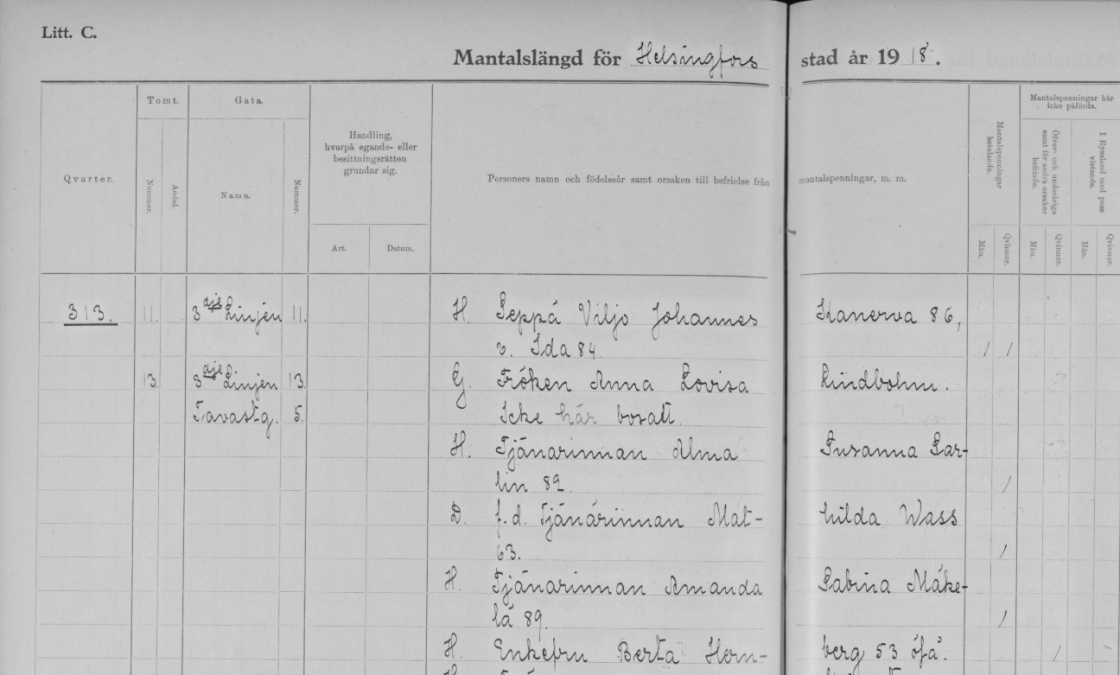 Litt. C.
Mantalslängd för Helsingfors stad år 1918.
Qvarter.
Tomt.
Nummer.
Andel.
Gata.
Namn.
Nummer.
Handling,
hvarpå egande- eller
besittningsrätten
grundar sig.
Art.
Datum.
Personers namn och födelseår samt orsaken till befrielse från mantalspenningar, m. m.
Mantalspenningar
betalande.
Män.
Qvinnor.
Mantalspenningar här
icke påförda.
Öfver- och underåriga
samt för andra orsaker
befriade.
Män.
Qvinnor.
I Ryssland med pass
vistande.
Män.
Qvinnor.
313. 11. 3dje Linjen 11. H. Seppä Viljo Johannes Kanerva 86,
v. Ida 84. / /
13. 3dje Linjen 13. G. Fröken Anna Lovisa Lindbohm.
Tavastg. 5. Icke här bosatt.
H. Tjänarinnan Alma Susanna Lar-
lin 82. /
D. f.d. Tjänarinnan Mat- hilda Wass
63. /
H. Tjänarinnan Amanda Sabina Mäke-
lä 89. /
H. Enkefru Berta Hern- berg 53 öfå. /